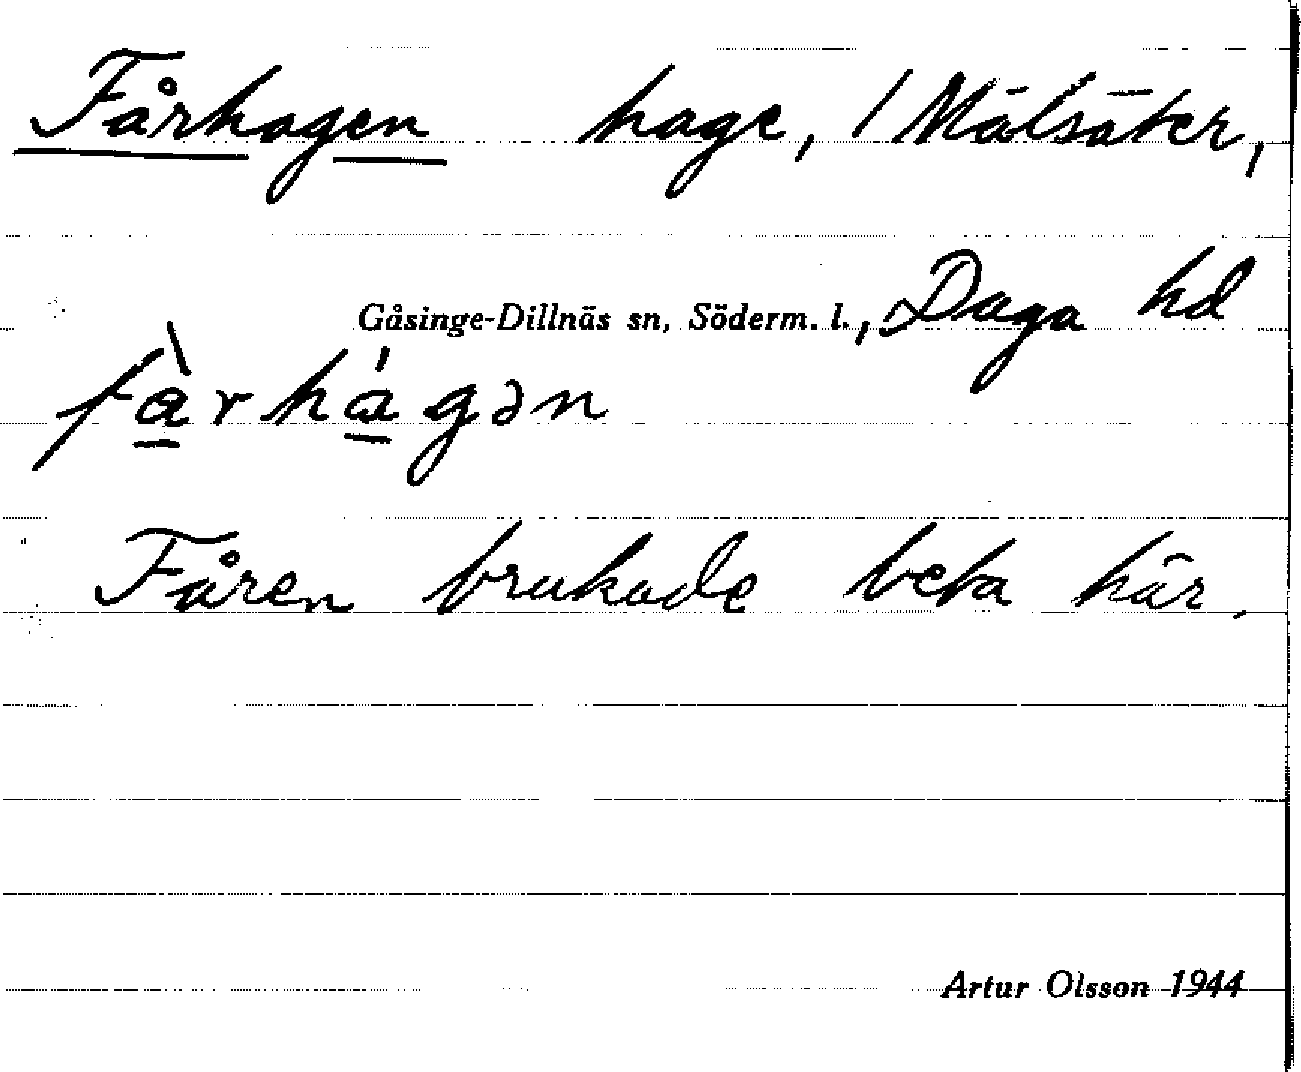 Fårhagen hage, 1 Mälsäter,
Gåsinge-Dillnäs sn, Söderm. l., Daga hd
fàrhágən
Fåren brukade beta här.
Artur Olsson 1944